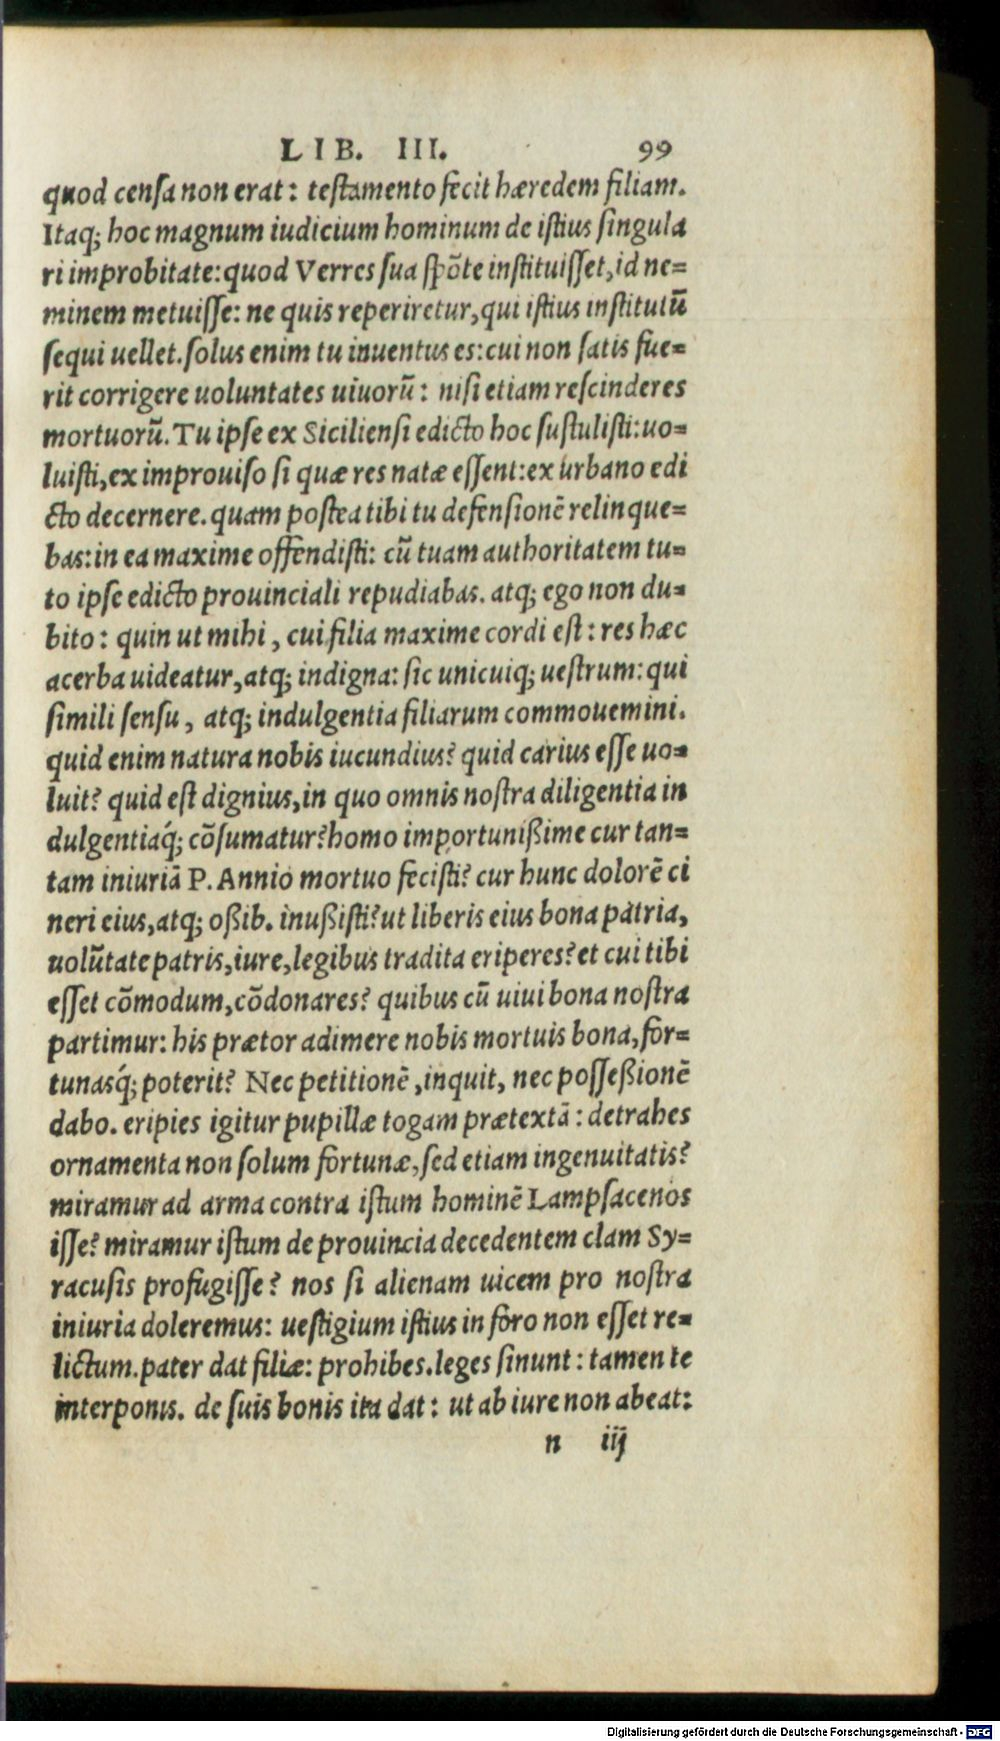 LIB. III. 99
quod censa non erat: testamento fecit hæredem filiam.
Itaq; hoc magnum iudicium hominum de istius singula
ri improbitate: quod Verres sua spōte instituisset, id ne=
minem metuisse: ne quis reperiretur, qui istius institutū
sequi uellet. solus enim tu inuentus es: cui non satis fue=
rit corrigere uoluntates uiuorū: nisi etiam rescinderes
mortuorū. Tu ipse ex Siciliensi edicto hoc sustulisti: uo=
luisti, ex improuiso si quæ res natæ essent: ex urbano edi
cto decernere. quam postea tibi tu defensionē relinque=
bas: in ea maxime offendisti: cū tuam authoritatem tu=
to ipse edicto prouinciali repudiabas. atq; ego non du=
bito: quin ut mihi, cui filia maxime cordi est: res hæc
acerba uideatur, atq; indigna: sic unicuiq; uestrum: qui
simili sensu, atq; indulgentia filiarum commouemini.
quid enim natura nobis iucundius? quid carius esse uo=
luit? quid est dignius, in quo omnis nostra diligentia in
dulgentiaq́; cōsumatur? homo importunißime cur tan=
tam iniuriā P. Annio mortuo fecisti? cur hunc dolorē ci
neri eius, atq; oßib. inußisti? ut liberis eius bona patria,
uolūtate patris, iure, legibus tradita eriperes? et cui tibi
esset cōmodum, cōdonares? quibus cū uiui bona nostra
partimur: his prætor adimere nobis mortuis bona, for=
tunasq́; poterit? Nec petitionē, inquit, nec posseßionē
dabo. eripies igitur pupillæ togam prætextā: detrahes
ornamenta non solum fortunæ, sed etiam ingenuitatis?
miramur ad arma contra istum hominē Lampsacenos
isse? miramur istum de prouincia decedentem clam Sy=
racusis profugisse? nos si alienam uicem pro nostra
iniuria doleremus: uestigium istius in foro non esset re=
lictum. pater dat filiæ: prohibes. leges sinunt: tamen te
interponis. de suis bonis ita dat: ut ab iure non abeat:
n iij
Digitalisierung gefördert durch die Deutsche Forschungsgemeinschaft - DFG